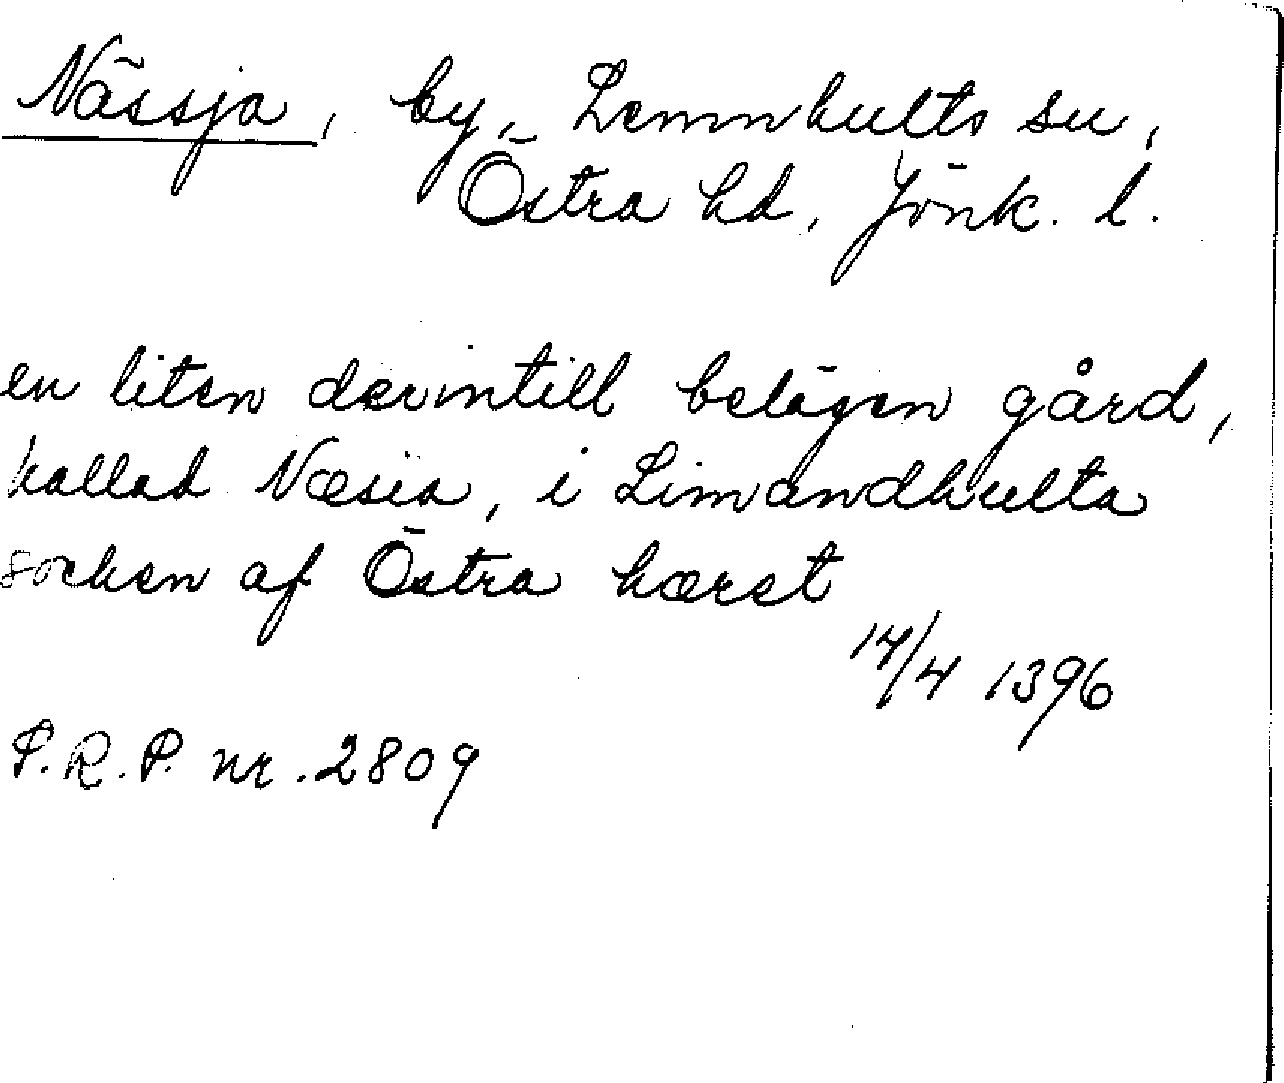 Nässja, by, Lemnhults sn,
Östra hd, Jönk. l.
en liten derintill belägen gård,
kallad Næsia, i Limandhulta
socken af Östra hæret
14/4 1396
S.R.P. nr. 2809